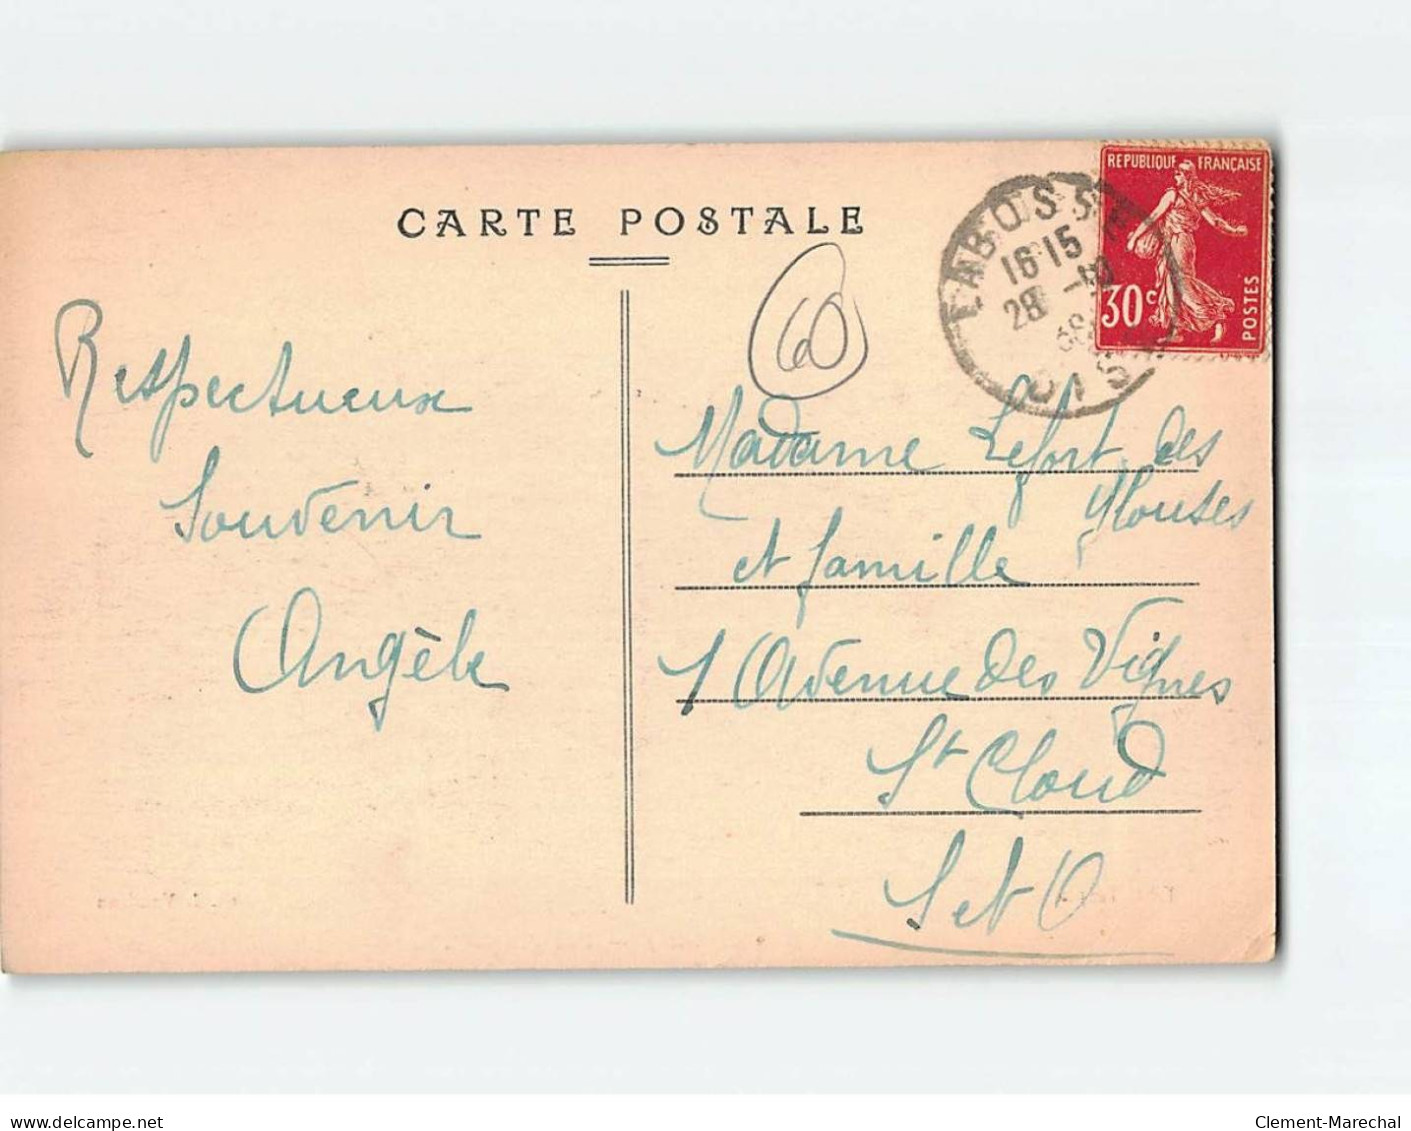 CARTE POSTALE
REPUBLIQUE FRANÇAISE
30c
POSTES
LABOSSE
16 15
28
OISE
60
Respectueux
Souvenir
Angèle
Madame Lefort des
et famille
1 Avenue des Vignes
St Cloud
S et O
delcampe.net
Clement-Marechal